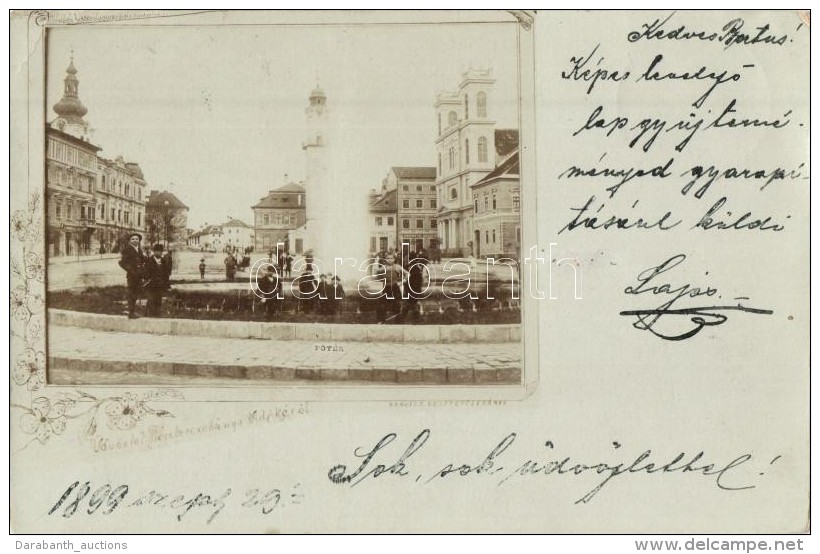 Kedves Bertus!
Képes levelező
lap gyűjtemé-
ményed gyarapí-
tásául küldi
Lajos.
darabanth
FŐTÉR
Üdvözlet Beszterczebánya
Sok, sok üdvözlettel!
1899 szept 29.
Darabanth_auctions
www.delcampe.net